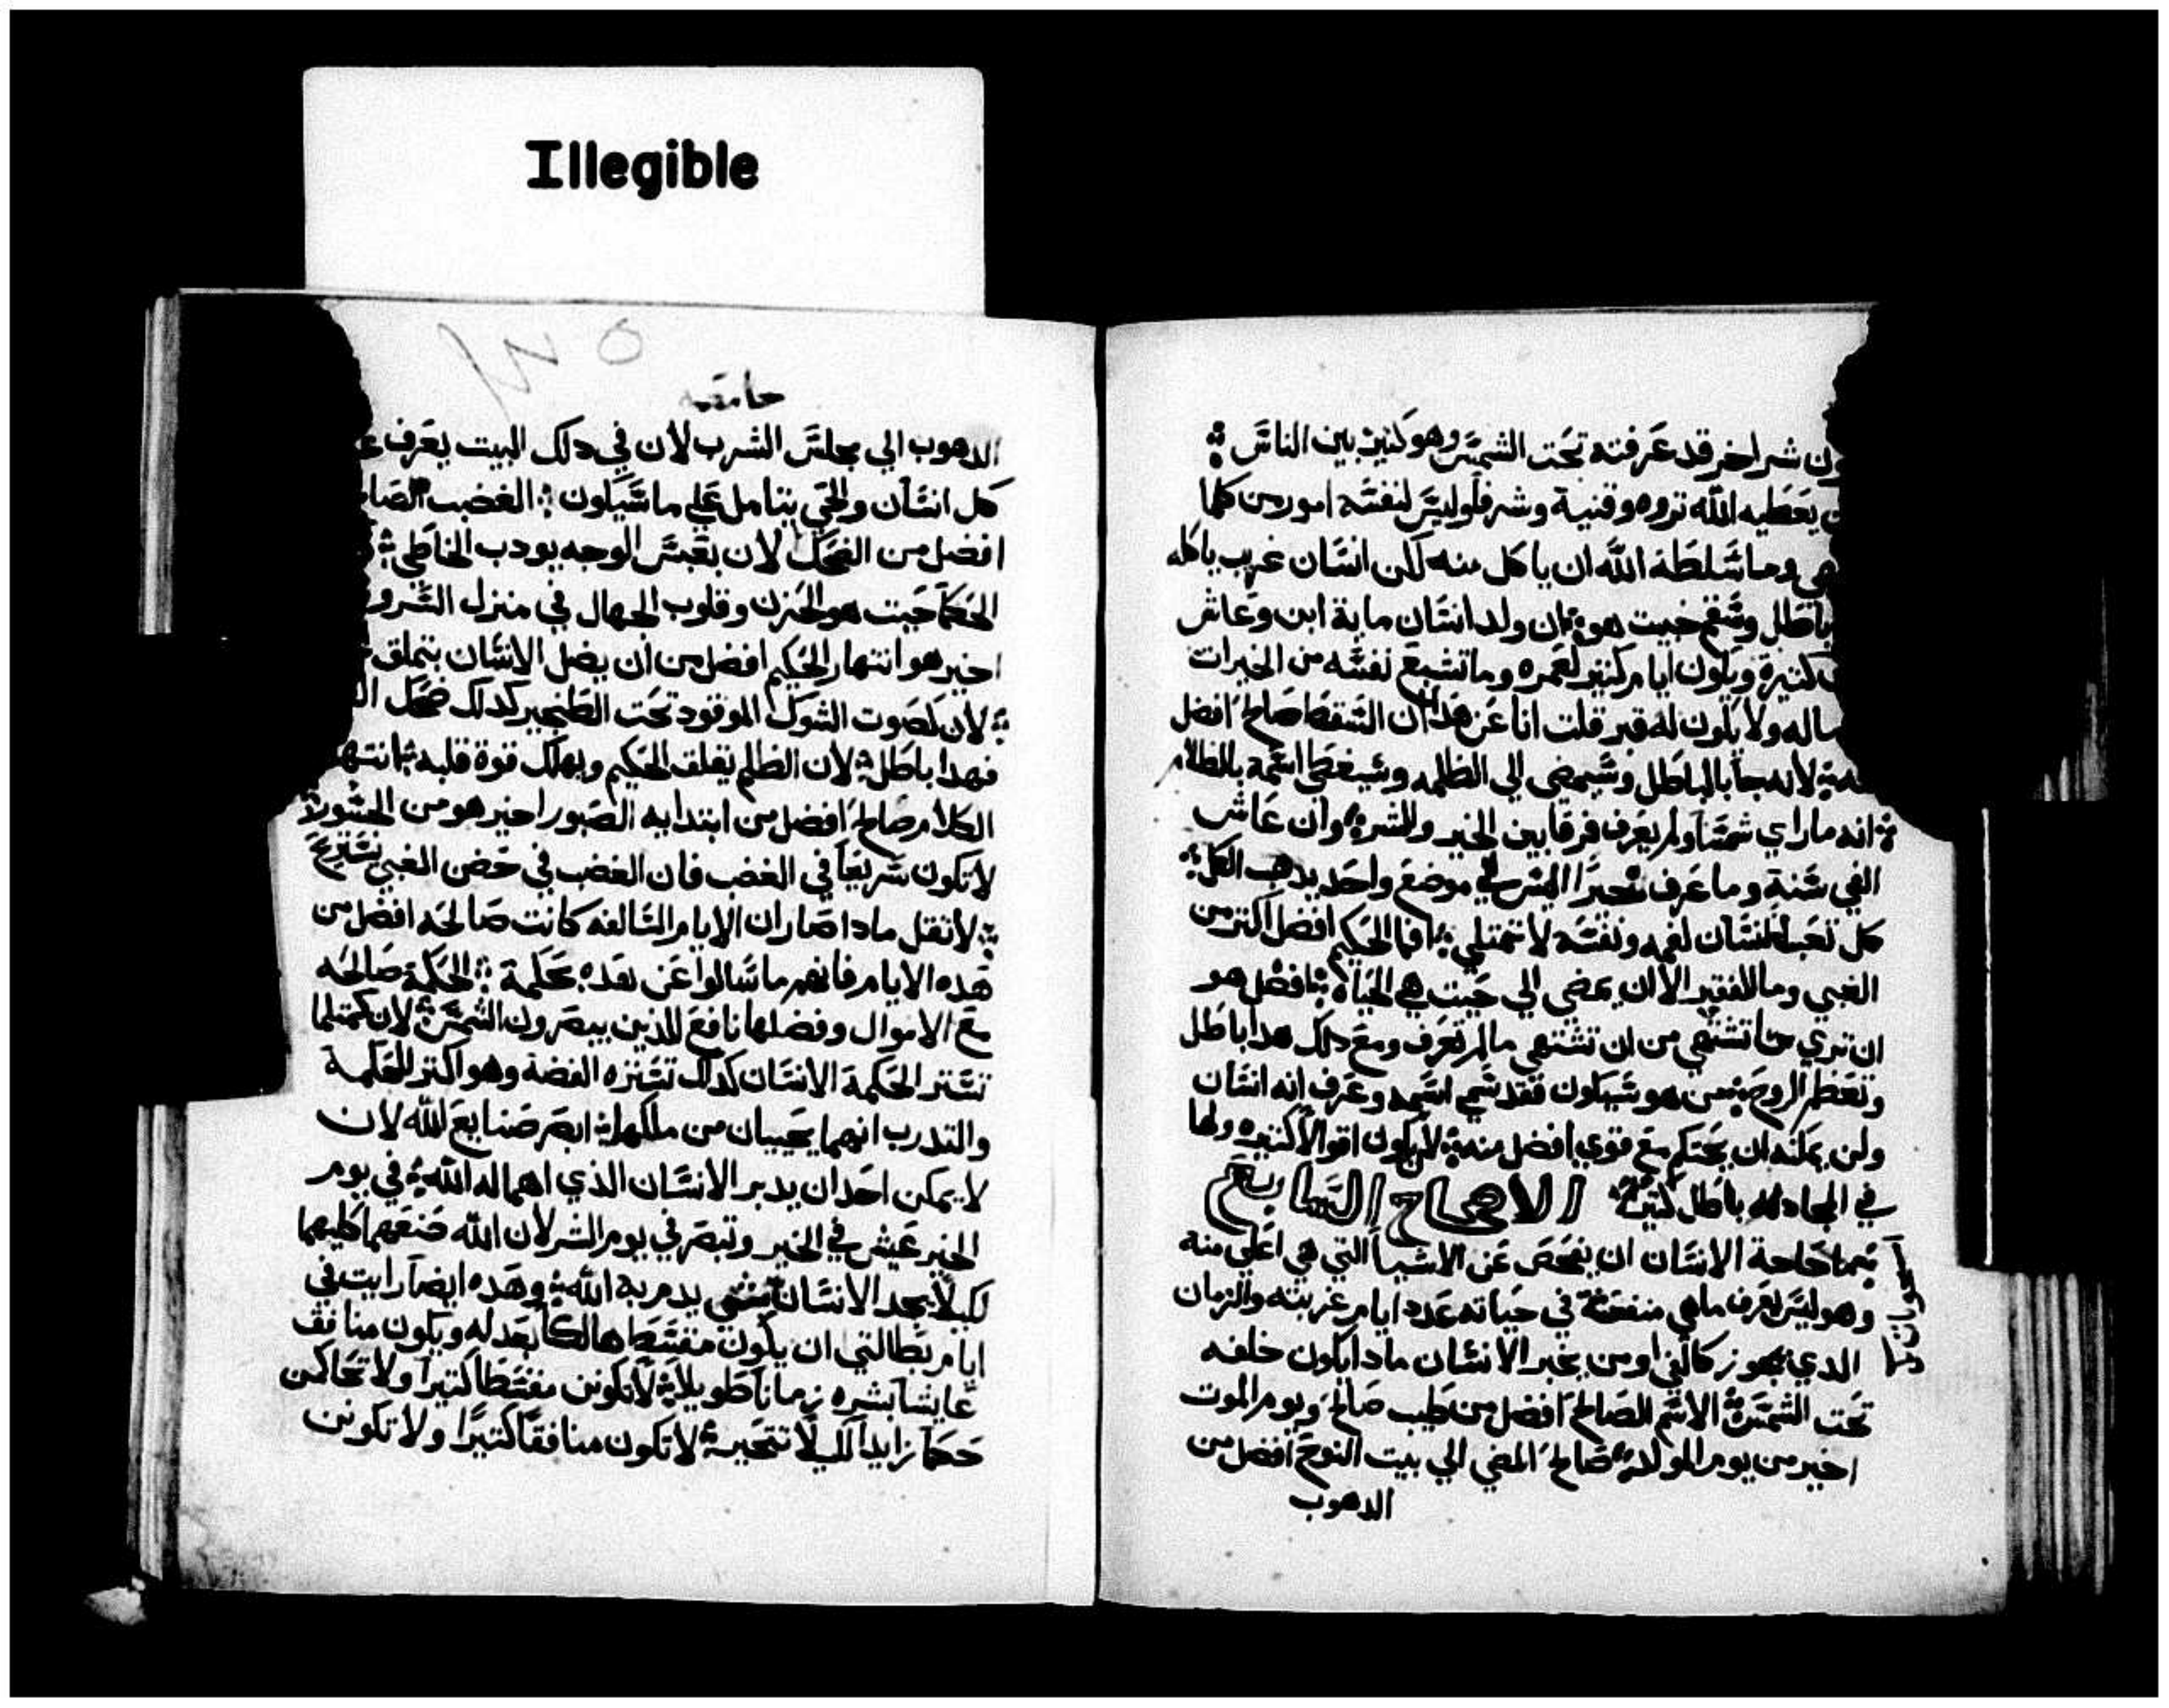 Illegible
ون شر اخر قد عرفته تحت الشمس وهو كتير بين الناس
يعطيه الله تروه وقنية وشرف وليس لنفسه امور من كلما
هي وما سلطة الله ان ياكل منه لكن انسان غريب ياكله
باطل وسقم خبيت هو ان ولد انسان ماية ابن وعاش
كتيرة ويكون ايام كتير لعمره وما تشبع نفسه من الخيرات
ولا يكون له قبر قلت انا عن هدا ان السقط صالح افضل
لانه جا بالباطل وسيمضي الي الظلمه وسيغطي اسمه بالظلام
انه ما راي شمسا ولم يعرف فرقا بين الخير والشر وان عاش
الفي سنة وما عرف خيرا اليس في موضع واحد يدهب الكل
كل تعب الانسان لفمه ونفسه لا تمتلي افما الحكيم افضل اكتر من
الغبي وما للفقير الا ان يمضي الي حيت هي الحياه افضل هو
ان تري ما تشتهي من ان تشتهي ما لم تعرف ومع دلك هدا باطل
وتعظم الروح من هو سيكون فقد سمي اسمه وعرف انه انسان
ولن يمكنه ان يحتكم مع قوي افضل منه لان يكون اقوالا كتيره ولها
في المجادله باطل كتير الاصحاح السابع
بما حاجة الانسان ان يفحص عن الاشيا التي هي اعلي منة
وهو ليس يعرف ما هي منفعة في حياته عدد ايام غربته والزمان
الدي يجوز كالفي او من يخبر الانسان مادا يكون خلفه
تحت الشمس الاسم الصالح افضل من طيب صالح ويوم الموت
اخير من يوم المولد صالح المضي الي بيت النوح افضل من
الدهوب
٥
جامعه
الدهوب الي مجلس الشرب لان في دلك البيت يعرف
كل انسان والحي يتامل علي ما سيكون الغضب
افضل من الضحك لان بتعبس الوجه يودب الخاطي
الحكما حيت هو الحزن وقلوب الجهال في منزل السرو
اخير هو انتهار الحكيم افضل من ان يضل الانسان بتملق
لان كصوت الشوك الموقود تحت الطنجير كدلك ضحك
فهدا باطل لان الظالم يقلق الحكيم ويهلك قوة قلبه انتها
الكلام صالح افضل من ابتدايه الصبور اخير هو من الجسور
لا تكون سريعا في الغضب فان الغضب في حضن الغبي يستريح
لا تقل مادا صار ان الايام السالفه كانت صالحه افضل من
هده الايام فانهم ما سالوا عن هده بحكمة الحكمة صالحه
مع الاموال وفضلها نافع للدين يبصرون الشمس لان كمتلما
تستر الحكمة الانسان كدلك تستره الفضة وهو اكتر للحكمة
والتدرب انهما يحييان من ملكهما ابصر صنايع الله لان
لا يمكن احد ان يدبر الانسان الذي اهماله الله في يوم
الخير عيش في الخير وتبصر في يوم الشر لان الله صنعهما كليهما
لكيلا يجد الانسان يدمر به الله وهده ايضا رايت في
ايام بطالتي ان يكون مقسطا هالكا بعدله ويكون منافق
عايشا بشره زمانا طويلا لا تكونن مقسطا كتيرا ولا تحاكمن
حكما زايدا لكيلا تتحير لا تكون منافقا كتيرا ولا تكونن